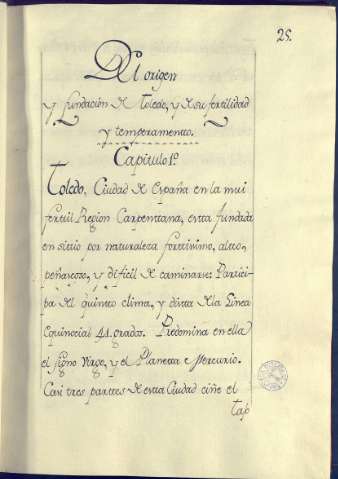 25.
Del origen
y fundación de Toledo, y de su fertilidad
y temperamento.
Capitulo 1º
Toledo, Ciudad de España en la mui
fertil Region Carpentana, esta fundada
en sitio por naturaleza fortisimo, alto,
peñascoso, y dificil de caminarse: Partici-
pa del quinto clima, y dista de la Linea
Equinocial 41. grados. Predomina en ella
el signo Virgo, y el Planeta Mercurio.
Casi tres partes de esta Ciudad ciñe el
Tajo